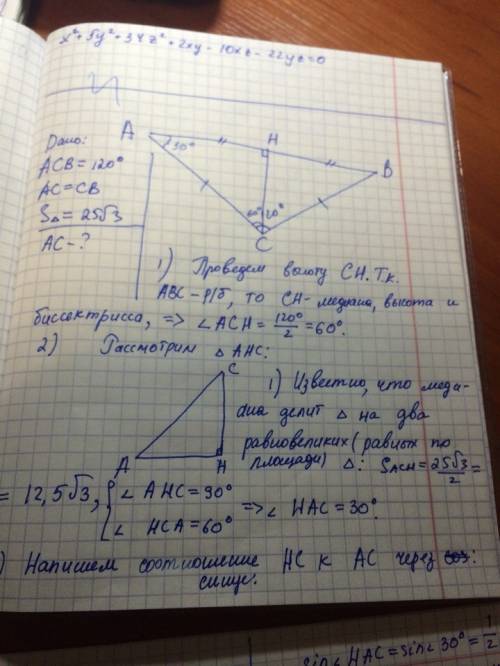 x² + 5y² + 34z² + 2xy - 10xz - 22yz = 0
Дано:
ACB = 120°
AC = CB
S△ = 25√3
AC - ?
A
30°
H
B
60°
C
1) Проведем высоту CH. Т.к.
ABC - р/б, то CH - медиана, высота и
биссектрисса, => ∠ACH = 120°/2 = 60°.
2) Рассмотрим △ AHC:
C
A
H
1) Известно, что меди-
ана делит △ на два
равновеликих (равных по
площади) △: S_ACH = 25√3/2 =
= 12,5√3, { ∠ AHC = 90°
∠ HCA = 60° => ∠ HAC = 30°.
) Напишем соотношение HC к AC через
синус.
sin∠HAC = sin∠30° = 1/2